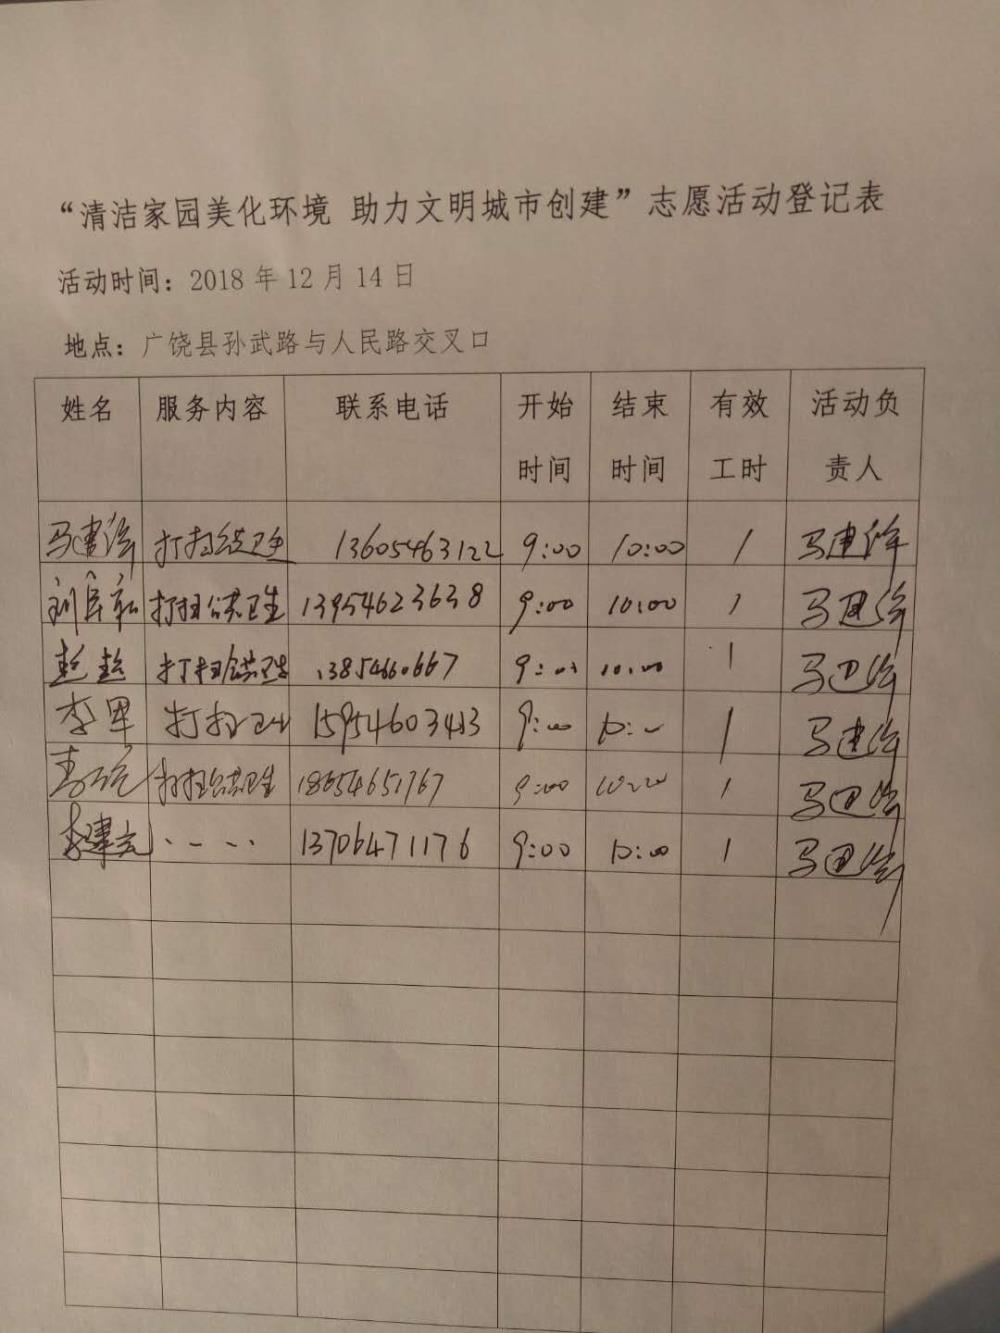 “清洁家园美化环境 助力文明城市创建”志愿活动登记表
活动时间：2018 年 12 月 14 日
地点：广饶县孙武路与人民路交叉口
姓名 服务内容 联系电话 开始时间 结束时间 有效工时 活动负责人
马建 打扫公共卫生 13605463122 9:00 10:00 1 马建
打扫公共卫生 13954623638 9:00 10:00 1 马建
打扫公共卫生 9:00 10:00 1 马建
李军 打扫卫生 15954603413 9:00 10:00 1 马建
打扫公共卫生 18654651767 9:00 10:00 1 马建
李建 13706471176 9:00 10:00 1 马建